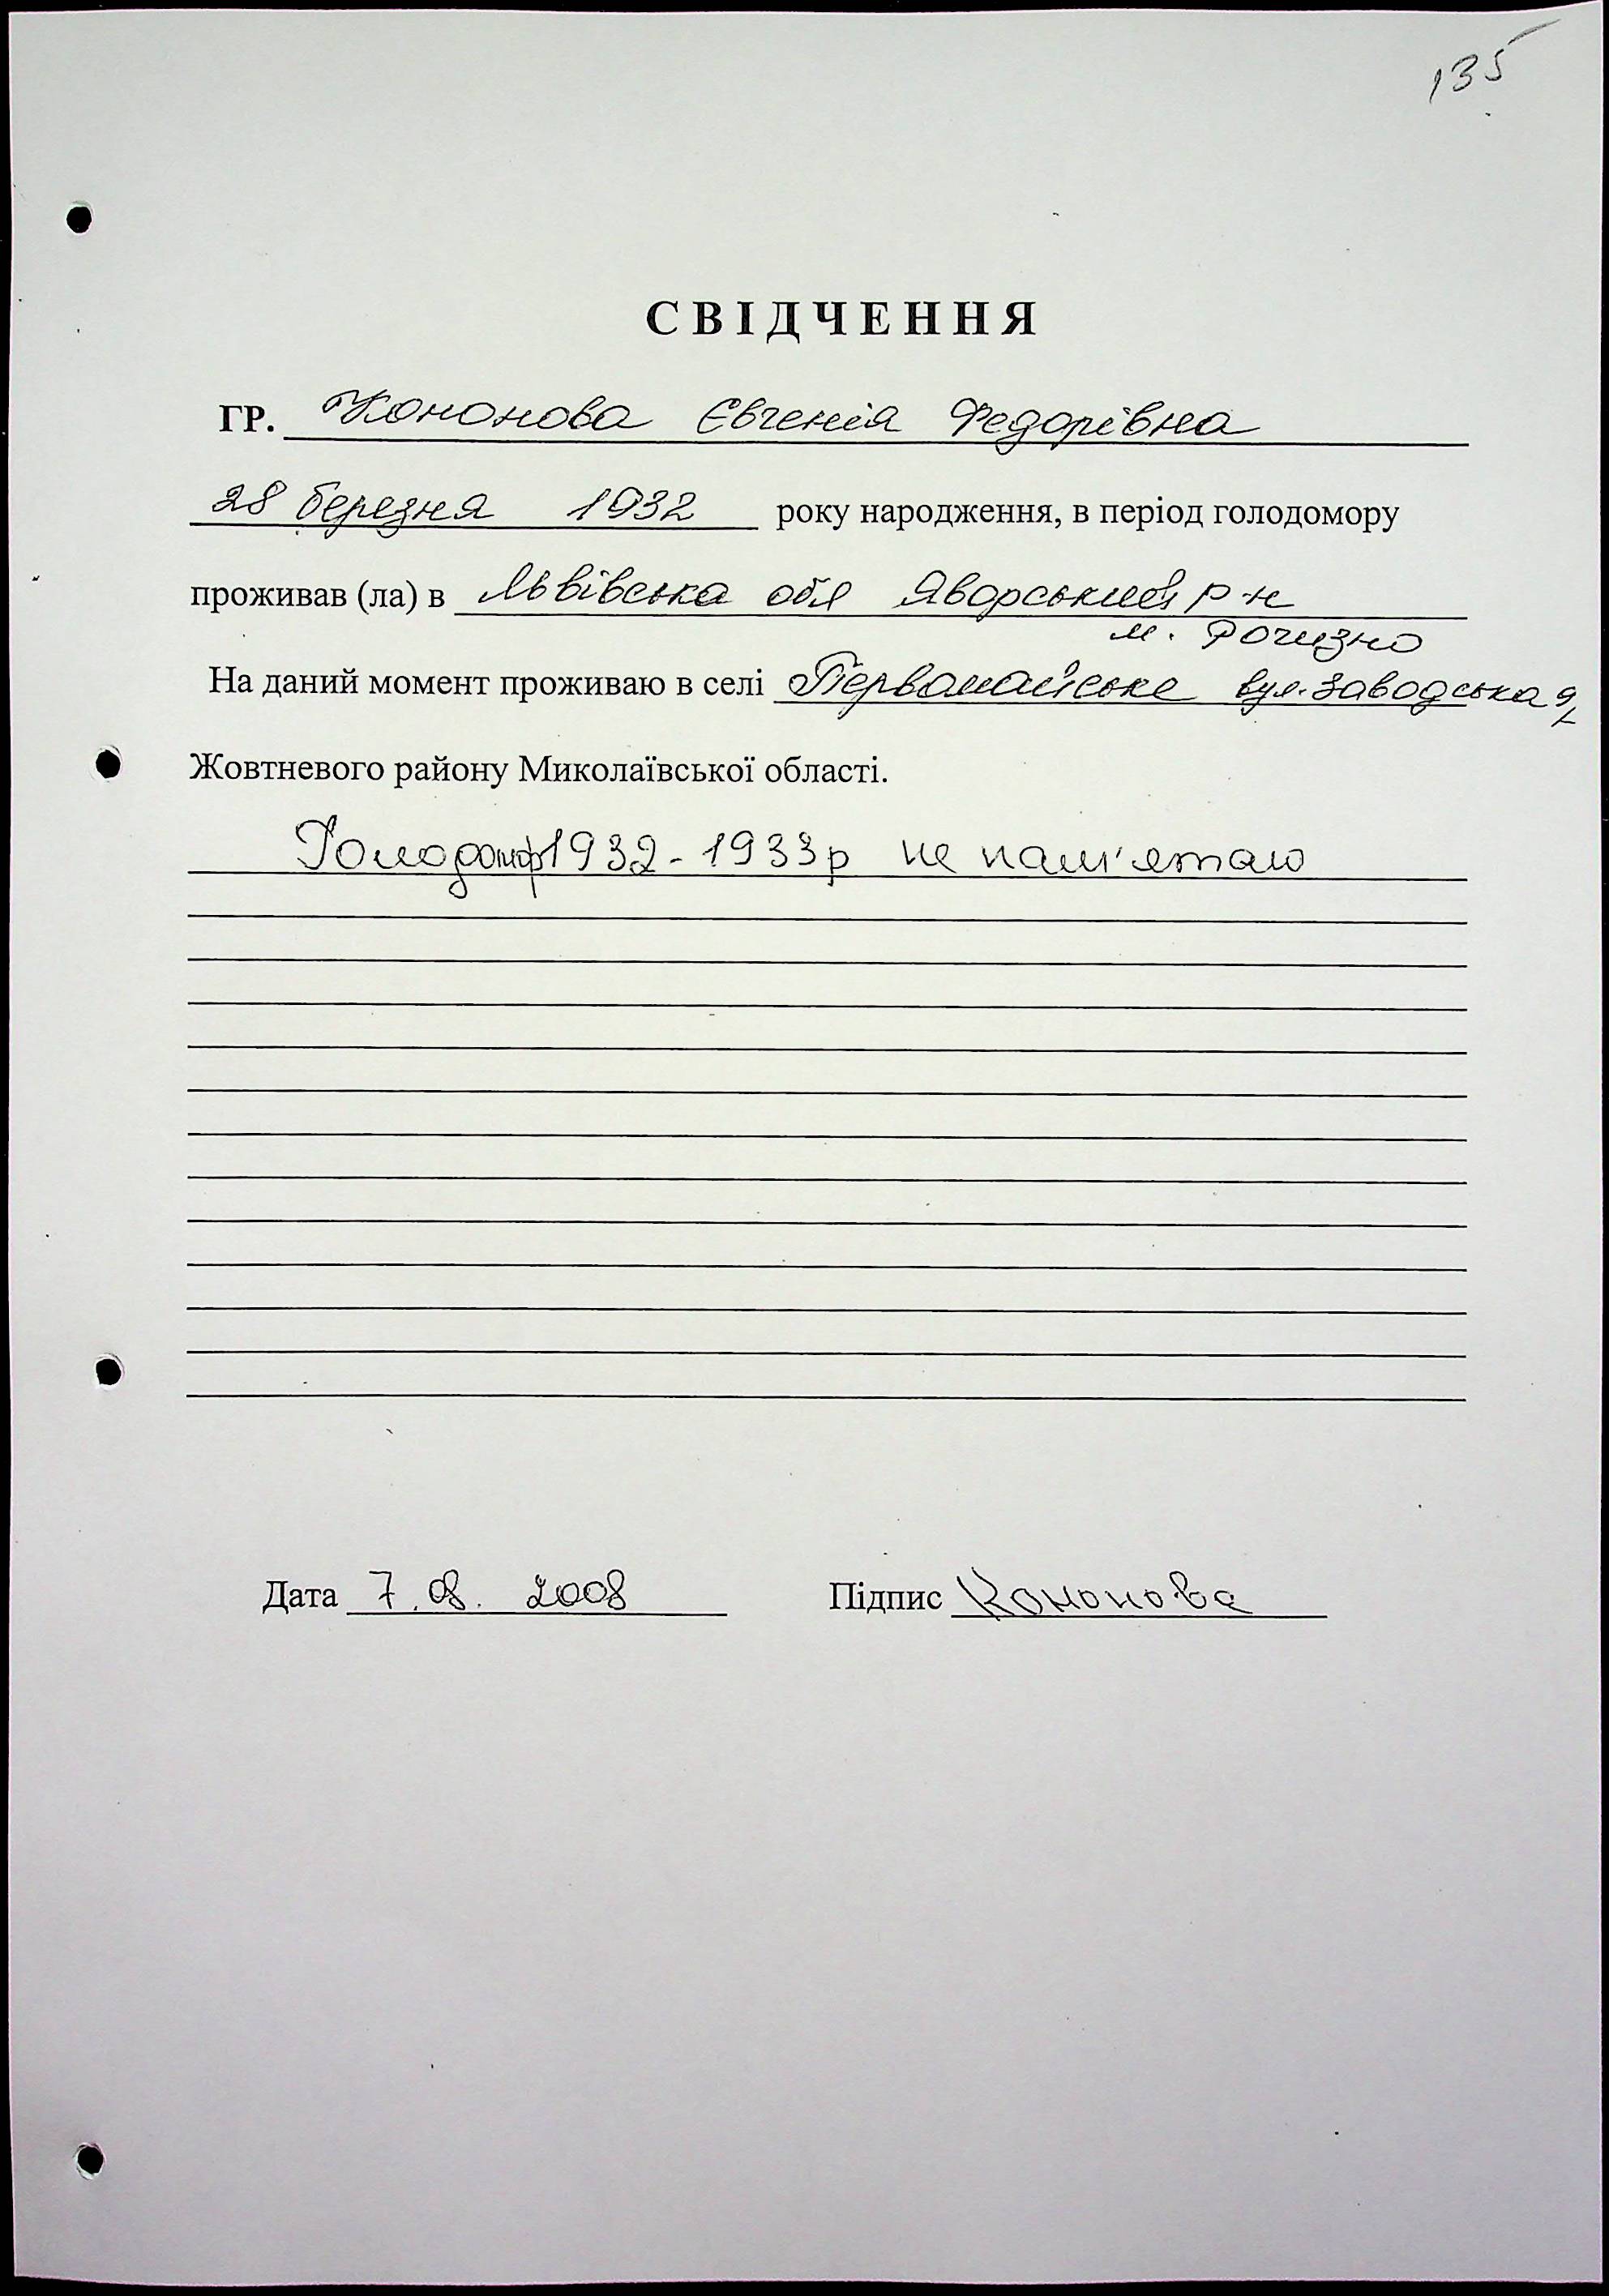 135
СВІДЧЕННЯ
ГР. Кононова Євгенія Федорівна
28 березня 1932 року народження, в період голодомору
проживав (ла) в Львівська обл Яворський р-н
м. Рогизно
На даний момент проживаю в селі Первомайське вул. Заводська
Жовтневого району Миколаївської області.
Голодомор 1932-1933р не пам'ятаю
Дата 7.08.2008 Підпис Кононова